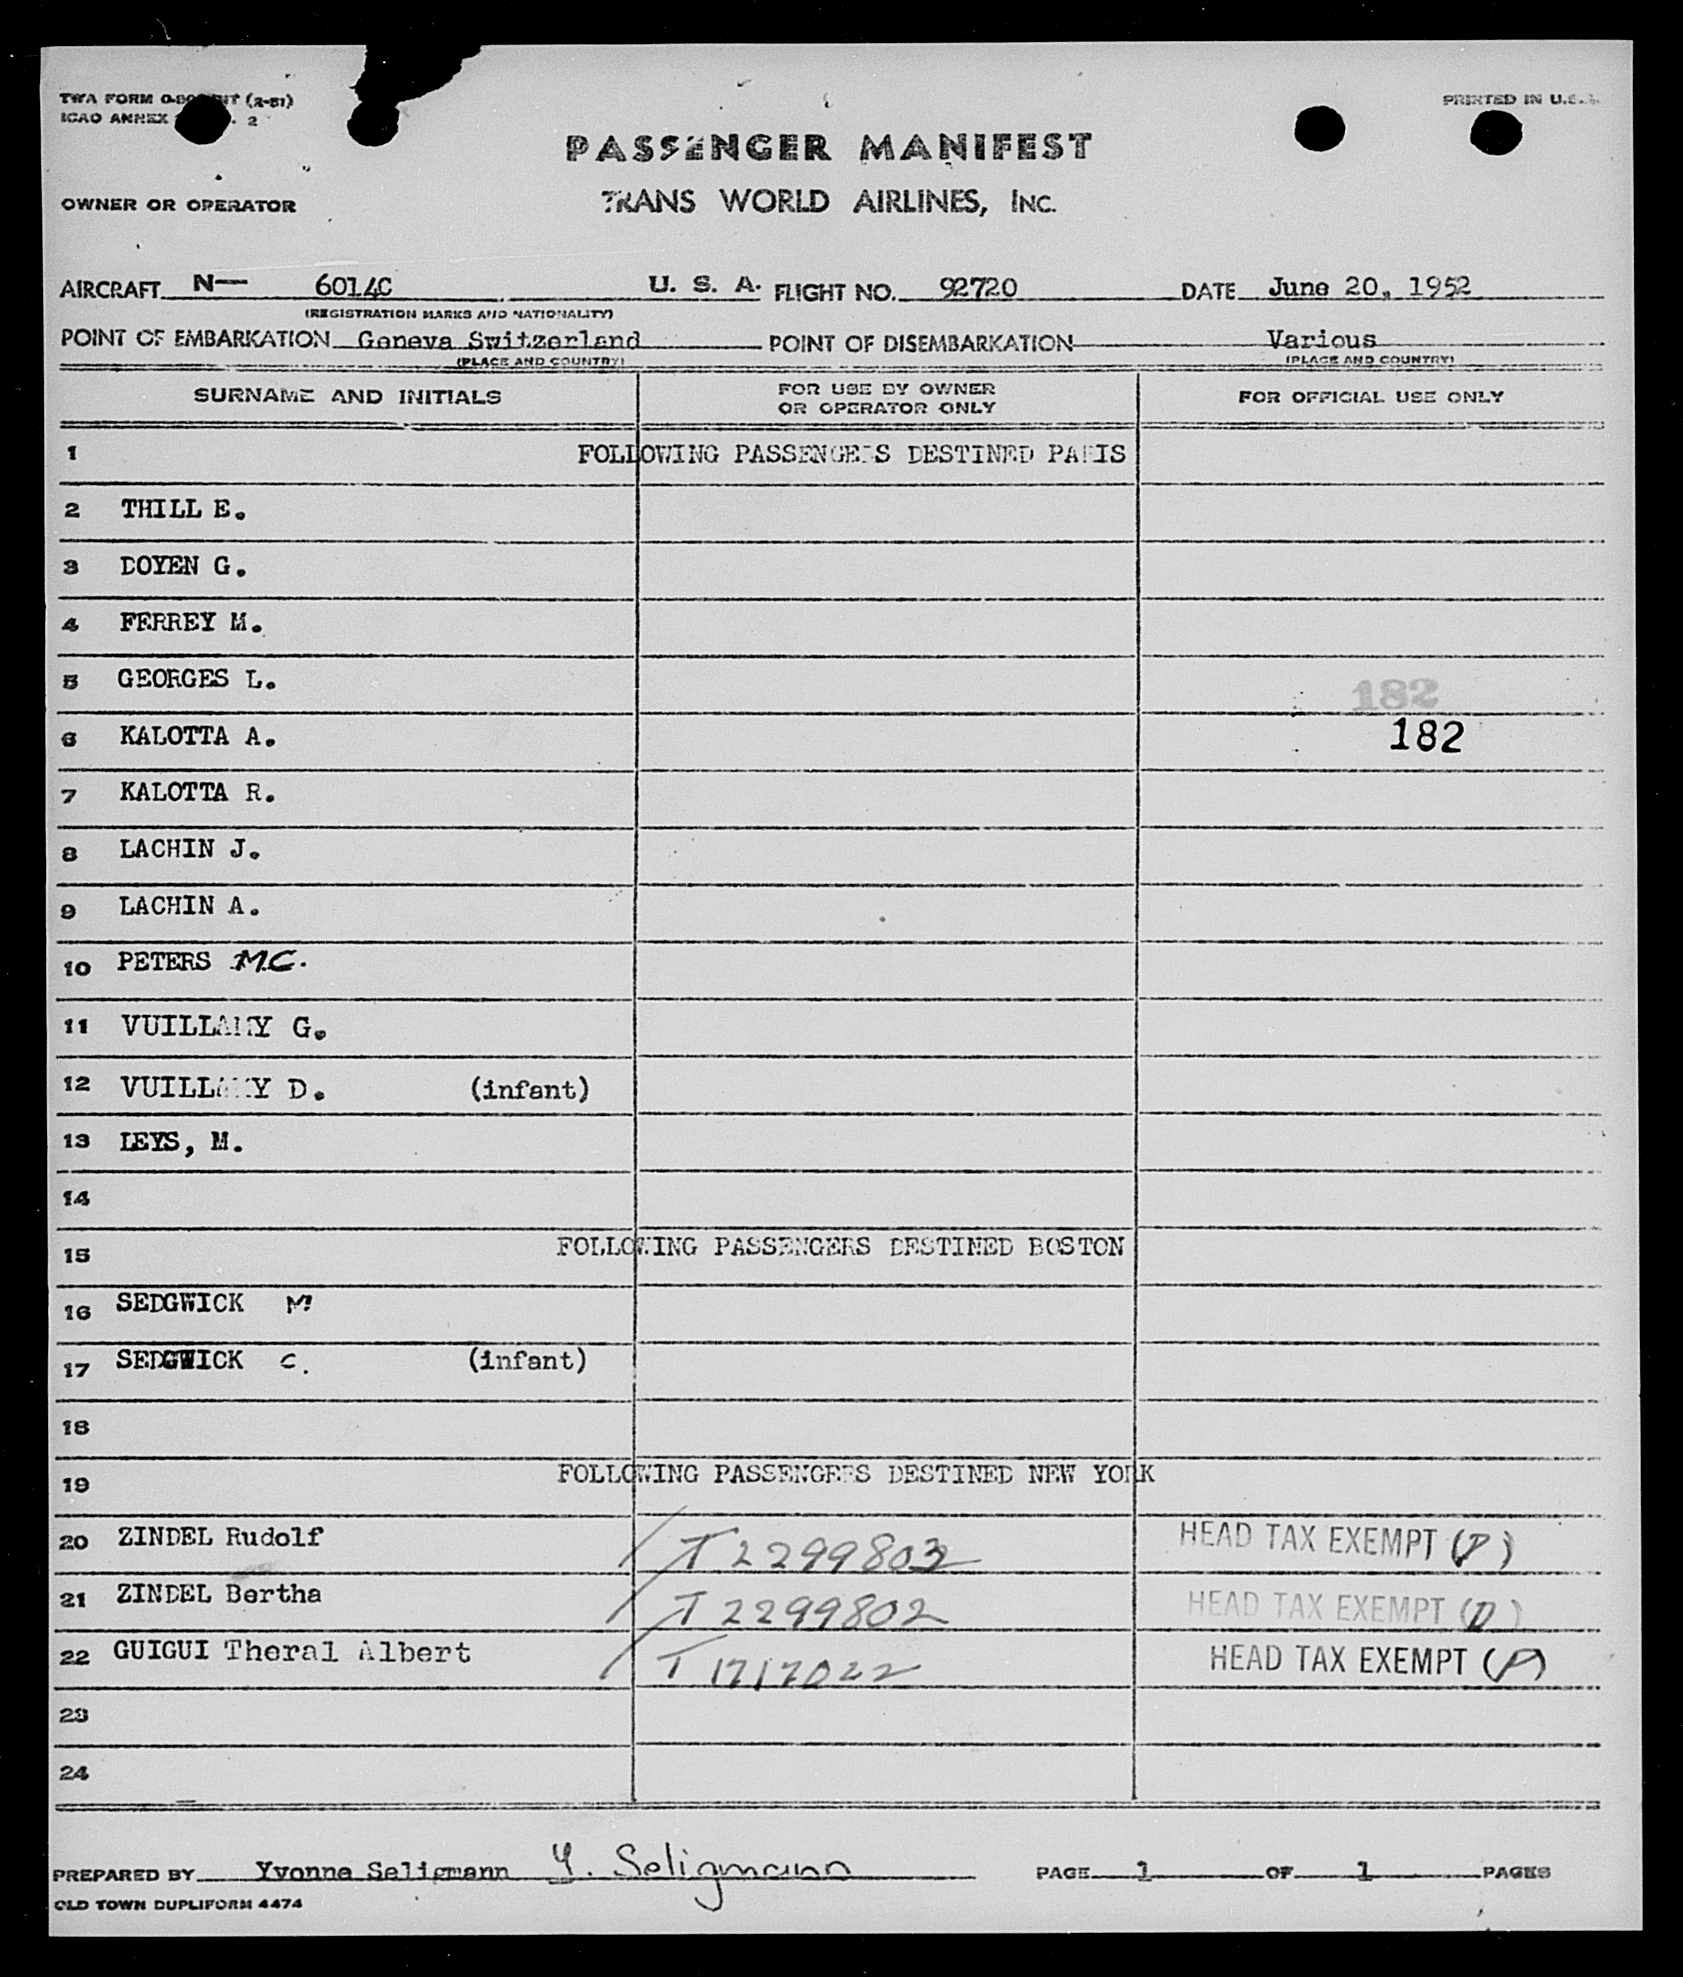 TWA FORM (2-51)
ICAO ANNEX 2
PRINTED IN U.S.A.
PASSENGER MANIFEST
OWNER OR OPERATOR TRANS WORLD AIRLINES, INC.
AIRCRAFT N— 6014C U. S. A. FLIGHT NO. 92720 DATE June 20, 1952
(REGISTRATION MARKS AND NATIONALITY)
POINT OF EMBARKATION Geneva Switzerland POINT OF DISEMBARKATION Various
(PLACE AND COUNTRY) (PLACE AND COUNTRY)
SURNAME AND INITIALS FOR USE BY OWNER OR OPERATOR ONLY FOR OFFICIAL USE ONLY
1 FOLLOWING PASSENGERS DESTINED PARIS
2 THILL E.
3 DOYEN G.
4 FERREY M.
5 GEORGES L. 182
6 KALOTTA A. 182
7 KALOTTA R.
8 LACHIN J.
9 LACHIN A.
10 PETERS M.C.
11 VUILLAMY G.
12 VUILLAMY D. (infant)
13 LEYS, M.
14
15 FOLLOWING PASSENGERS DESTINED BOSTON
16 SEDGWICK M
17 SEDGWICK C. (infant)
18
19 FOLLOWING PASSENGERS DESTINED NEW YORK
20 ZINDEL Rudolf T 2299803 HEAD TAX EXEMPT (P)
21 ZINDEL Bertha T 2299802 HEAD TAX EXEMPT (D)
22 GUIGUI Theral Albert T 1717022 HEAD TAX EXEMPT (P)
23
24
PREPARED BY Yvonne Seligmann Y. Seligmann PAGE 1 OF 1 PAGES
OLD TOWN DUPLIFORM 4474